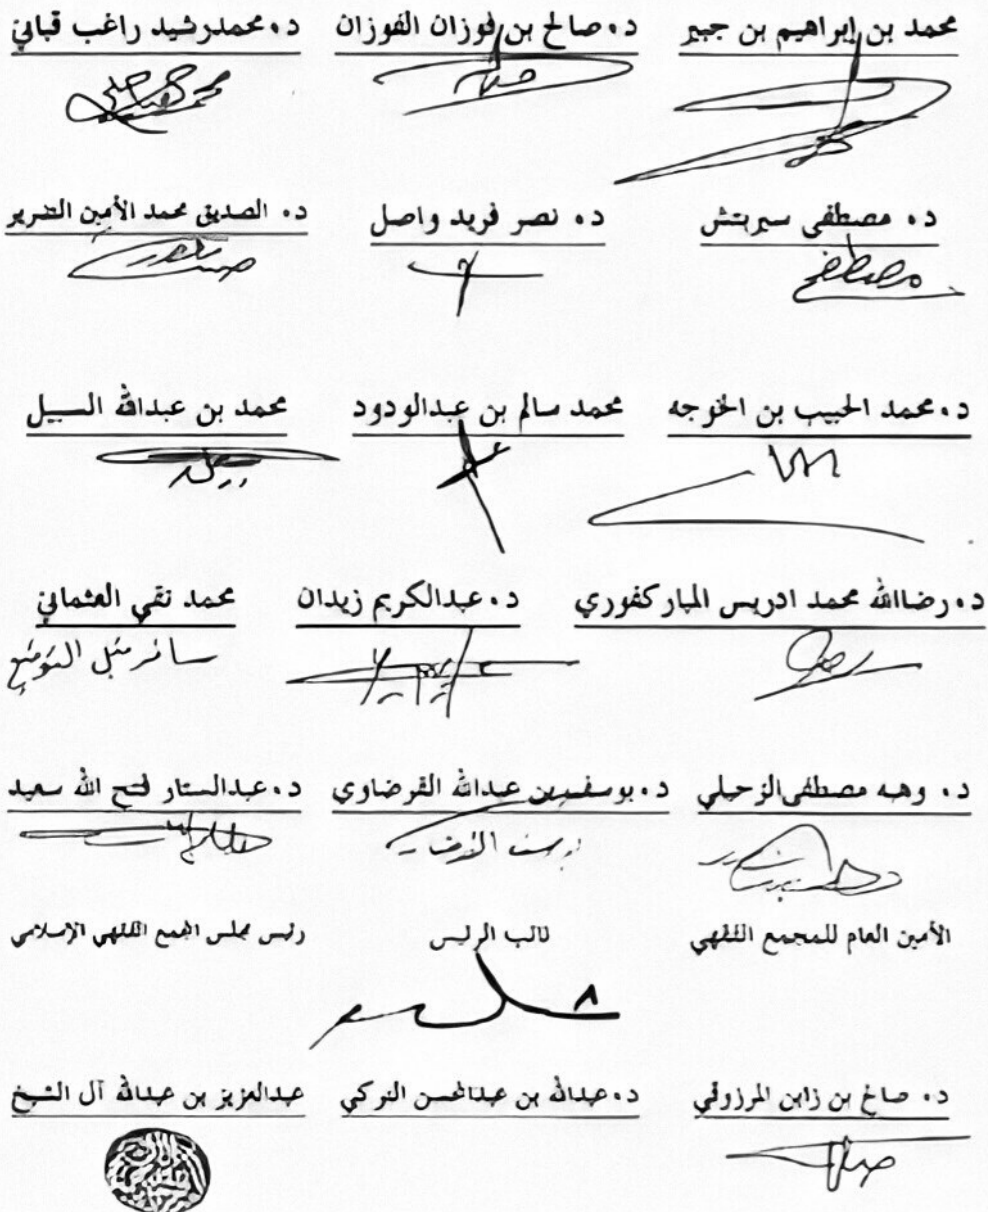 محمد بن إبراهيم بن جبير د. صالح بن فوزان الفوزان د. محمد رشيد راغب قباني
د. مصطفى سيريتش د. نصر فريد واصل د. الصديق محمد الأمين الضرير
مصطفى
د. محمد الحبيب بن الخوجه محمد سالم بن عبدالودود محمد بن عبدالله السبيل
د. رضاالله محمد ادريس المباركفوري د. عبدالكريم زيدان محمد تقي العثماني
د. وهبه مصطفى الزحيلي د. يوسف بن عبدالله القرضاوي د. عبدالستار فتح الله سعيد
الأمين العام للمجمع الفقهي نائب الرئيس رئيس مجلس المجمع الفقهي الإسلامي
د. صالح بن زابن المرزوقي د. عبدالله بن عبدالمحسن التركي عبدالعزيز بن عبدالله آل الشيخ